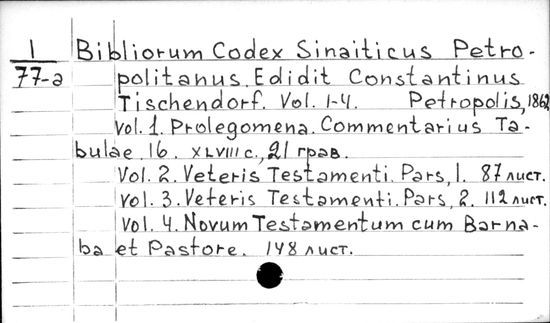 1 Bibliorum Codex Sinaiticus Petro-
77-a politanus. Edidit Constantinus
Tischendorf. Vol. 1-4. Petropolis, 1862
Vol. 1. Prolegomena. Commentarius Ta-
bulae. 16. XLVIII c., 21 грав.
Vol. 2. Veteris Testamenti. Pars, 1. 87 лист.
Vol. 3. Veteris Testamenti. Pars, 2. 112 лист.
Vol. 4. Novum Testamentum cum Barna-
ba et Pastore. 148 лист.